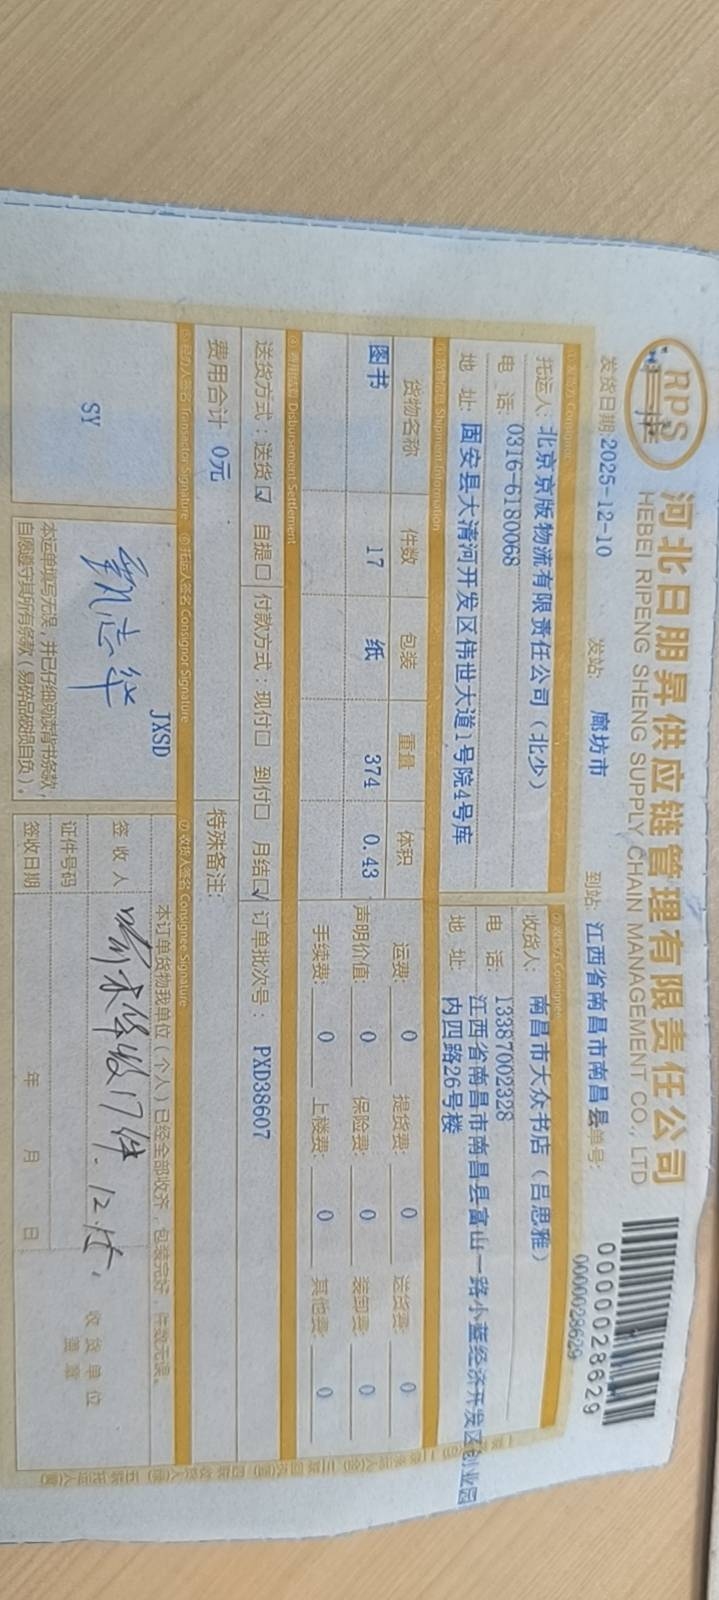 RPS
河北日朋昇供应链管理有限责任公司
HEBEI RIPENG SHENG SUPPLY CHAIN MANAGEMENT CO., LTD
0000028629
发货日期:2025-12-10 发站: 廊坊市 到站: 江西省南昌市南昌县 单号: 0000028629
托运人: 北京京版物流有限责任公司（北少）
电 话: 0316-6180068
地 址: 固安县大清河开发区伟世大道1号院4号库
收货人: 南昌市大众书店（吕思雅）
电 话: 13387002328
地 址: 江西省南昌市南昌县富山一路小蓝经济开发区创业园
内四路26号楼
③货物信息 Shipment Information
货物名称 件数 包装 重量 体积
图书 17 纸 374 0.43
运费: 0 提货费: 0 送货费: 0
声明价值: 0 保险费: 0 装卸费: 0
手续费: 0 上楼费: 0 其他费: 0
④费用结算 Disbursement Settlement
送货方式: 送货☑ 自提☐ 付款方式: 现付☐ 到付☐ 月结☑ 订单批次号: PXD38607
费用合计 0元 特殊备注:
⑤经办人签名 Transactor Signature ⑥托运人签名 Consignor Signature ⑦收货人签名 Consignee Signature
SY
JXSD
本运单填写无误，并已仔细阅读背书条款，
自愿遵守其所有条款（易碎品破损自负）。
本订单货物我单位（个人）已经全部收齐，包装完好，件数无误。
签 收 人 收17件.
证件号码
签收日期 年 月 日
收 货 单 位
盖 章